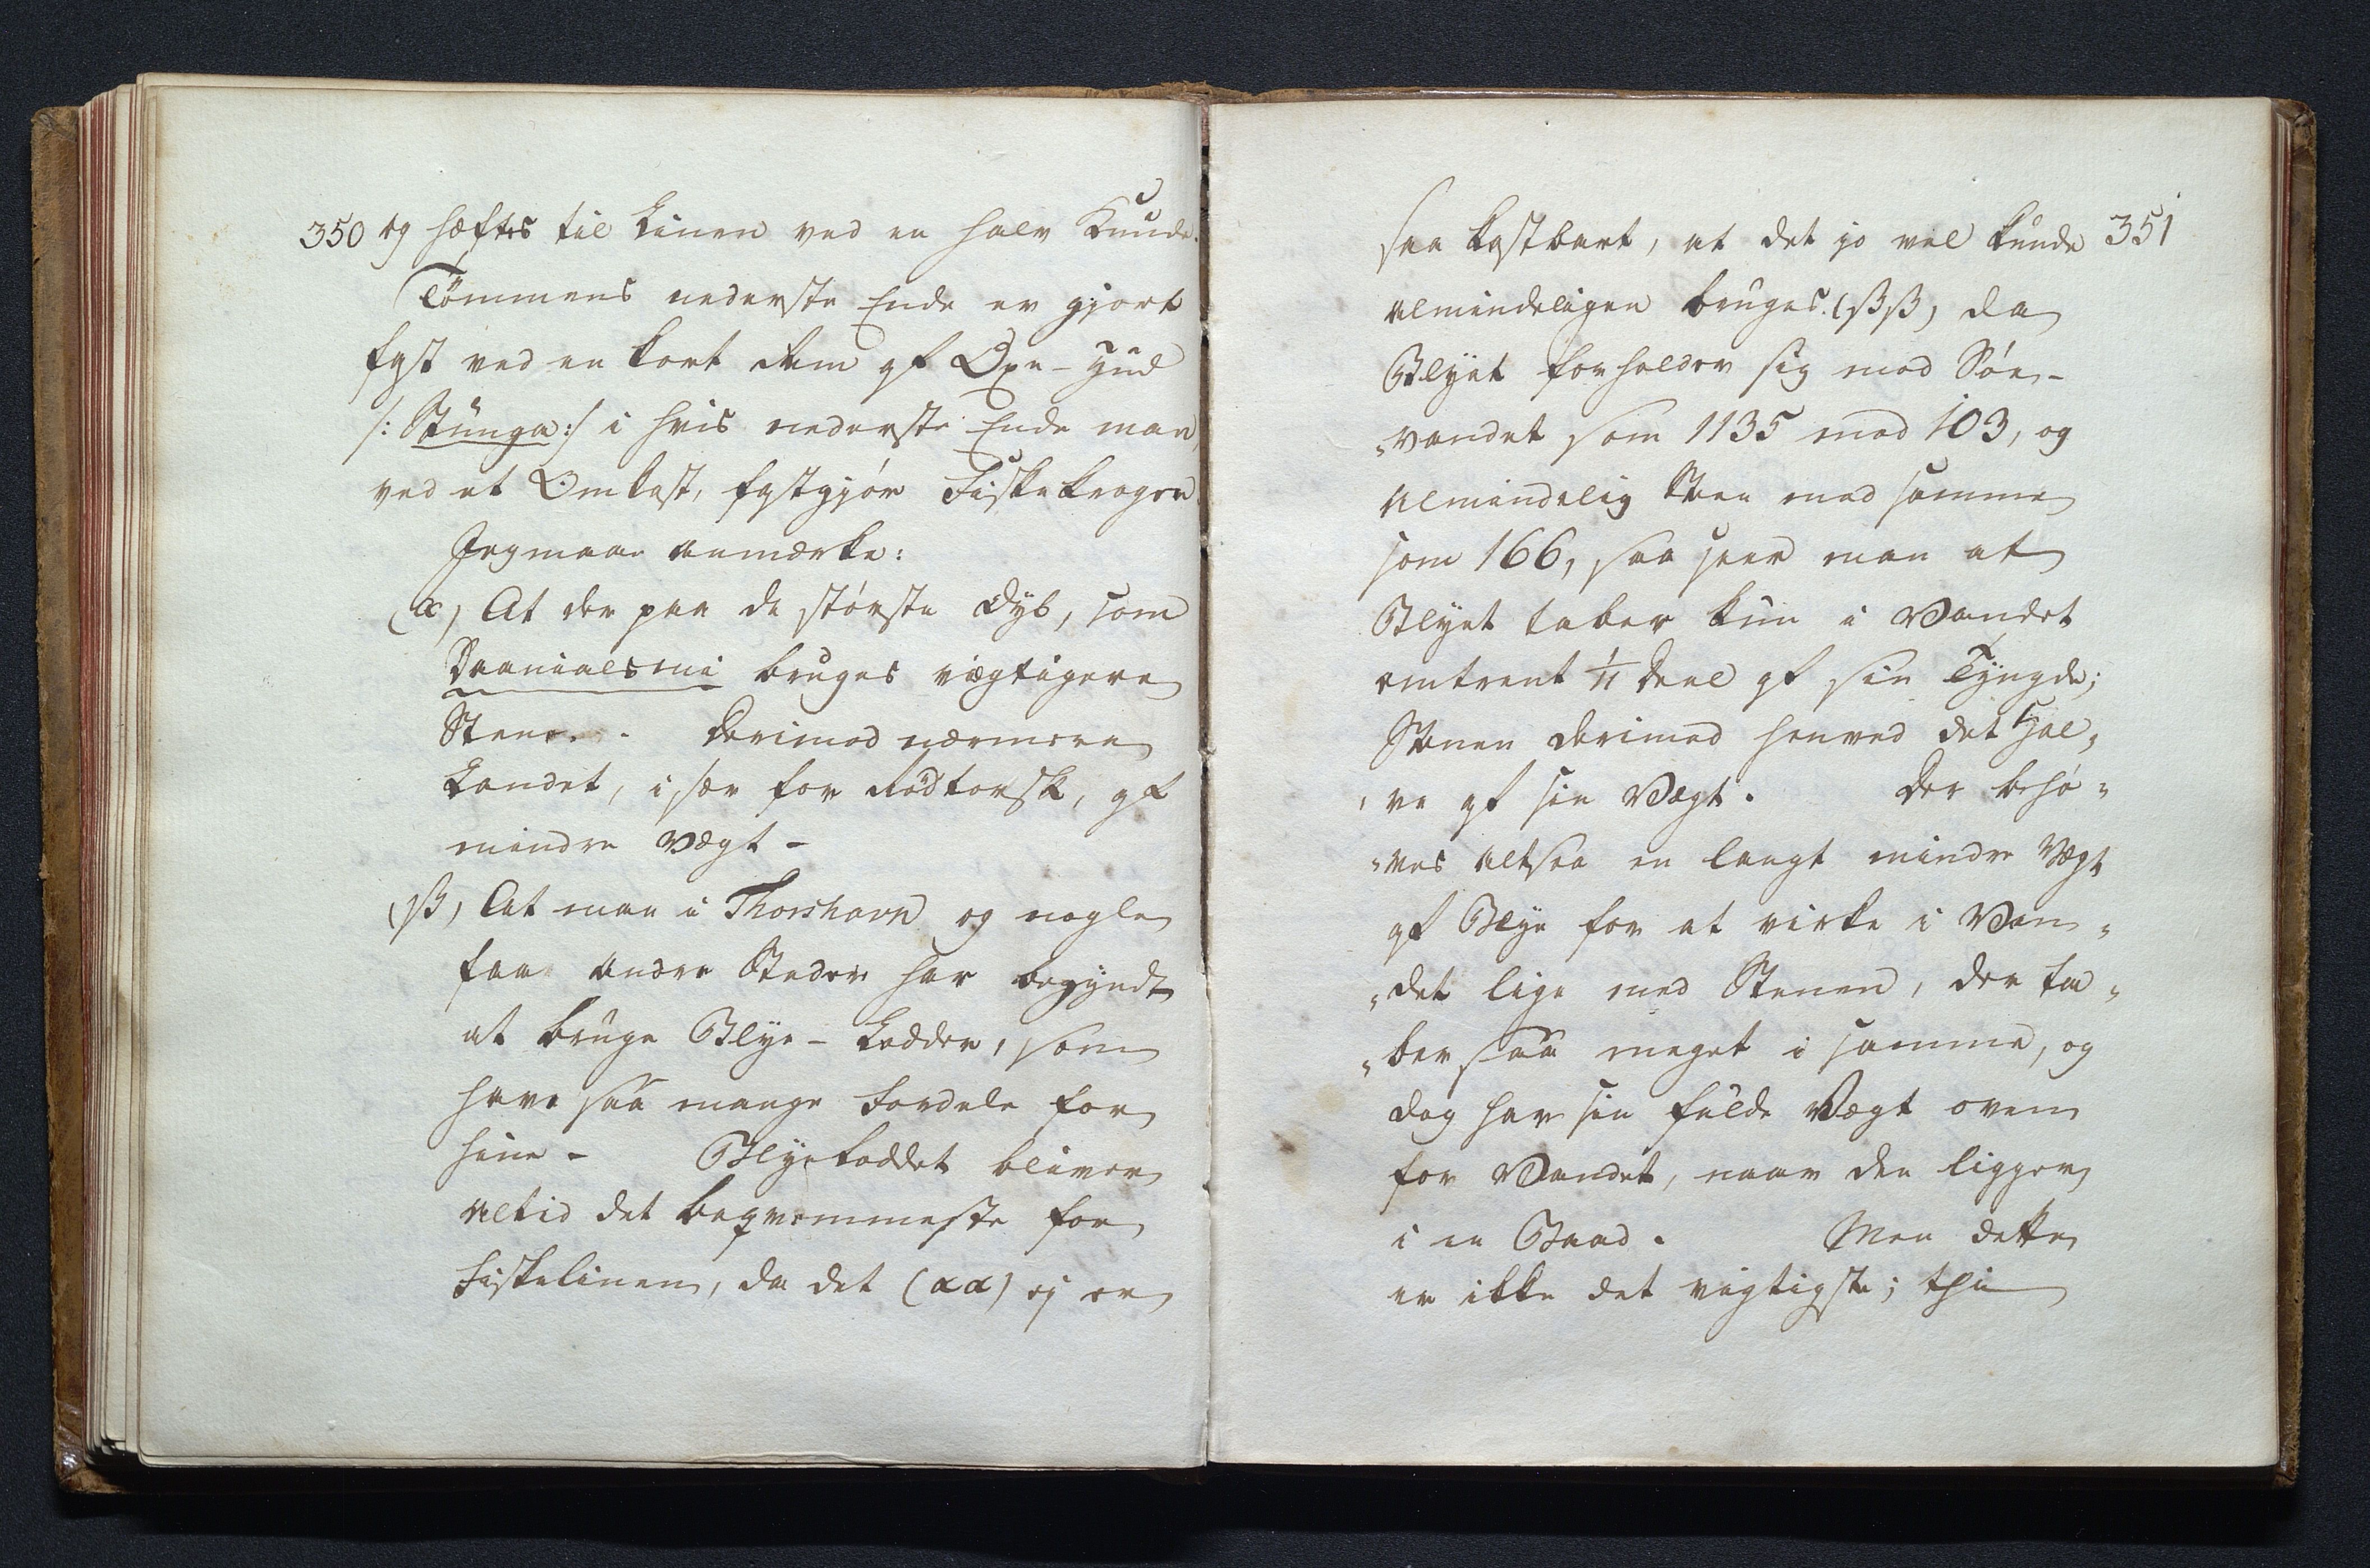 350 og hæftes til Linen ved en halv Knude.
Tømmens nederste Ende er gjort
fast ved en kort Rem af Oxe-Hud
/: Stunga :/ i hvis nederste Ende man,
ved et Omkast, fastgjør Fiskekrogen.
Jeg maae anmærke:
(α) At der paa de største Dyb, som
Daanialsmi bruges vægtigere
Stene. Derimod nærmere
Landet, især for Rødtorsk, af
mindre Vægt -
(β) At man i Thorshavn og nogle
faa andre Steder har begyndt
at bruge Blye-Lodder, som
have saa mange Fordele for
hine - Blyeloddet bliver
altid det beqvemmeste for
Fiskelinen, da det (αα) ej er
saa kostbart, at det jo vel kunde 351
almindeligen bruges. (ββ) da
Blyet forholder sig mod Søe-
"vandet som 1135 mod 103, og
almindelig Steen mod samme
som 166, saa seer man at
Blyet taber kun i Vandet
omtrent 1/11 Deel af sin Tyngde;
Stenen derimod henved det Hal"
"ve af sin Vægt. Der behø"
"ves altsaa en langt mindre Vægt
af Blye for at virke i Van"
"det lige med Stenen, der ta"
"ber saa meget i samme, og
dog har sin fulde Vægt oven
for Vandet, naar den ligger
i en Baad. Men dette
er ikke det vigtigste; thi